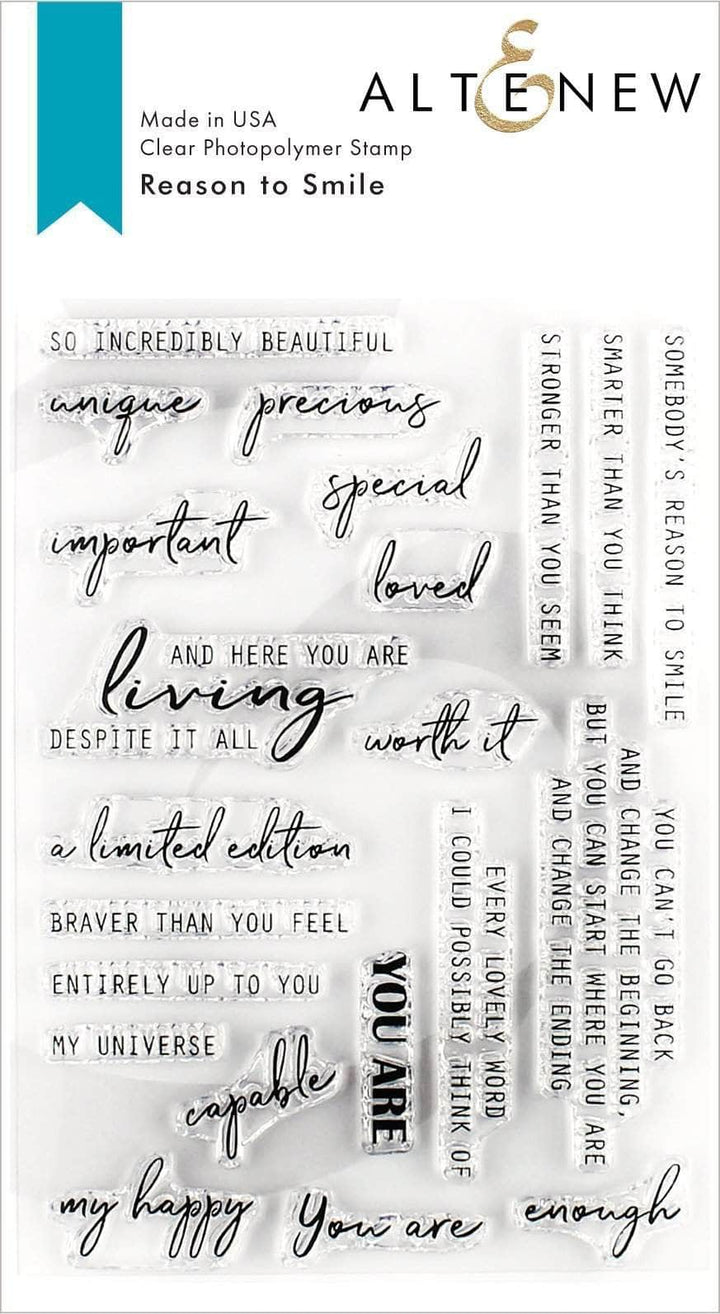 ALTENEW
Made in USA
Clear Photopolymer Stamp
Reason to Smile
SO INCREDIBLY BEAUTIFUL
unique
precious
special
important
loved
AND HERE YOU ARE
living
DESPITE IT ALL
worth it
a limited edition
BRAVER THAN YOU FEEL
ENTIRELY UP TO YOU
MY UNIVERSE
capable
YOU ARE
my happy
You are
enough
STRONGER THAN YOU SEEM
SMARTER THAN YOU THINK
SOMEBODY'S REASON TO SMILE
YOU CAN'T GO BACK
AND CHANGE THE BEGINNING,
BUT YOU CAN START WHERE YOU ARE
AND CHANGE THE ENDING
EVERY LOVELY WORD
I COULD POSSIBLY THINK OF